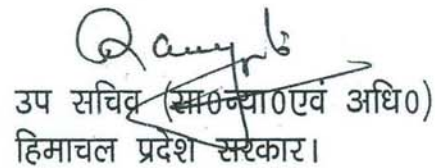 उप सचिव (सा0न्या0एवं अधि0)
हिमाचल प्रदेश सरकार।